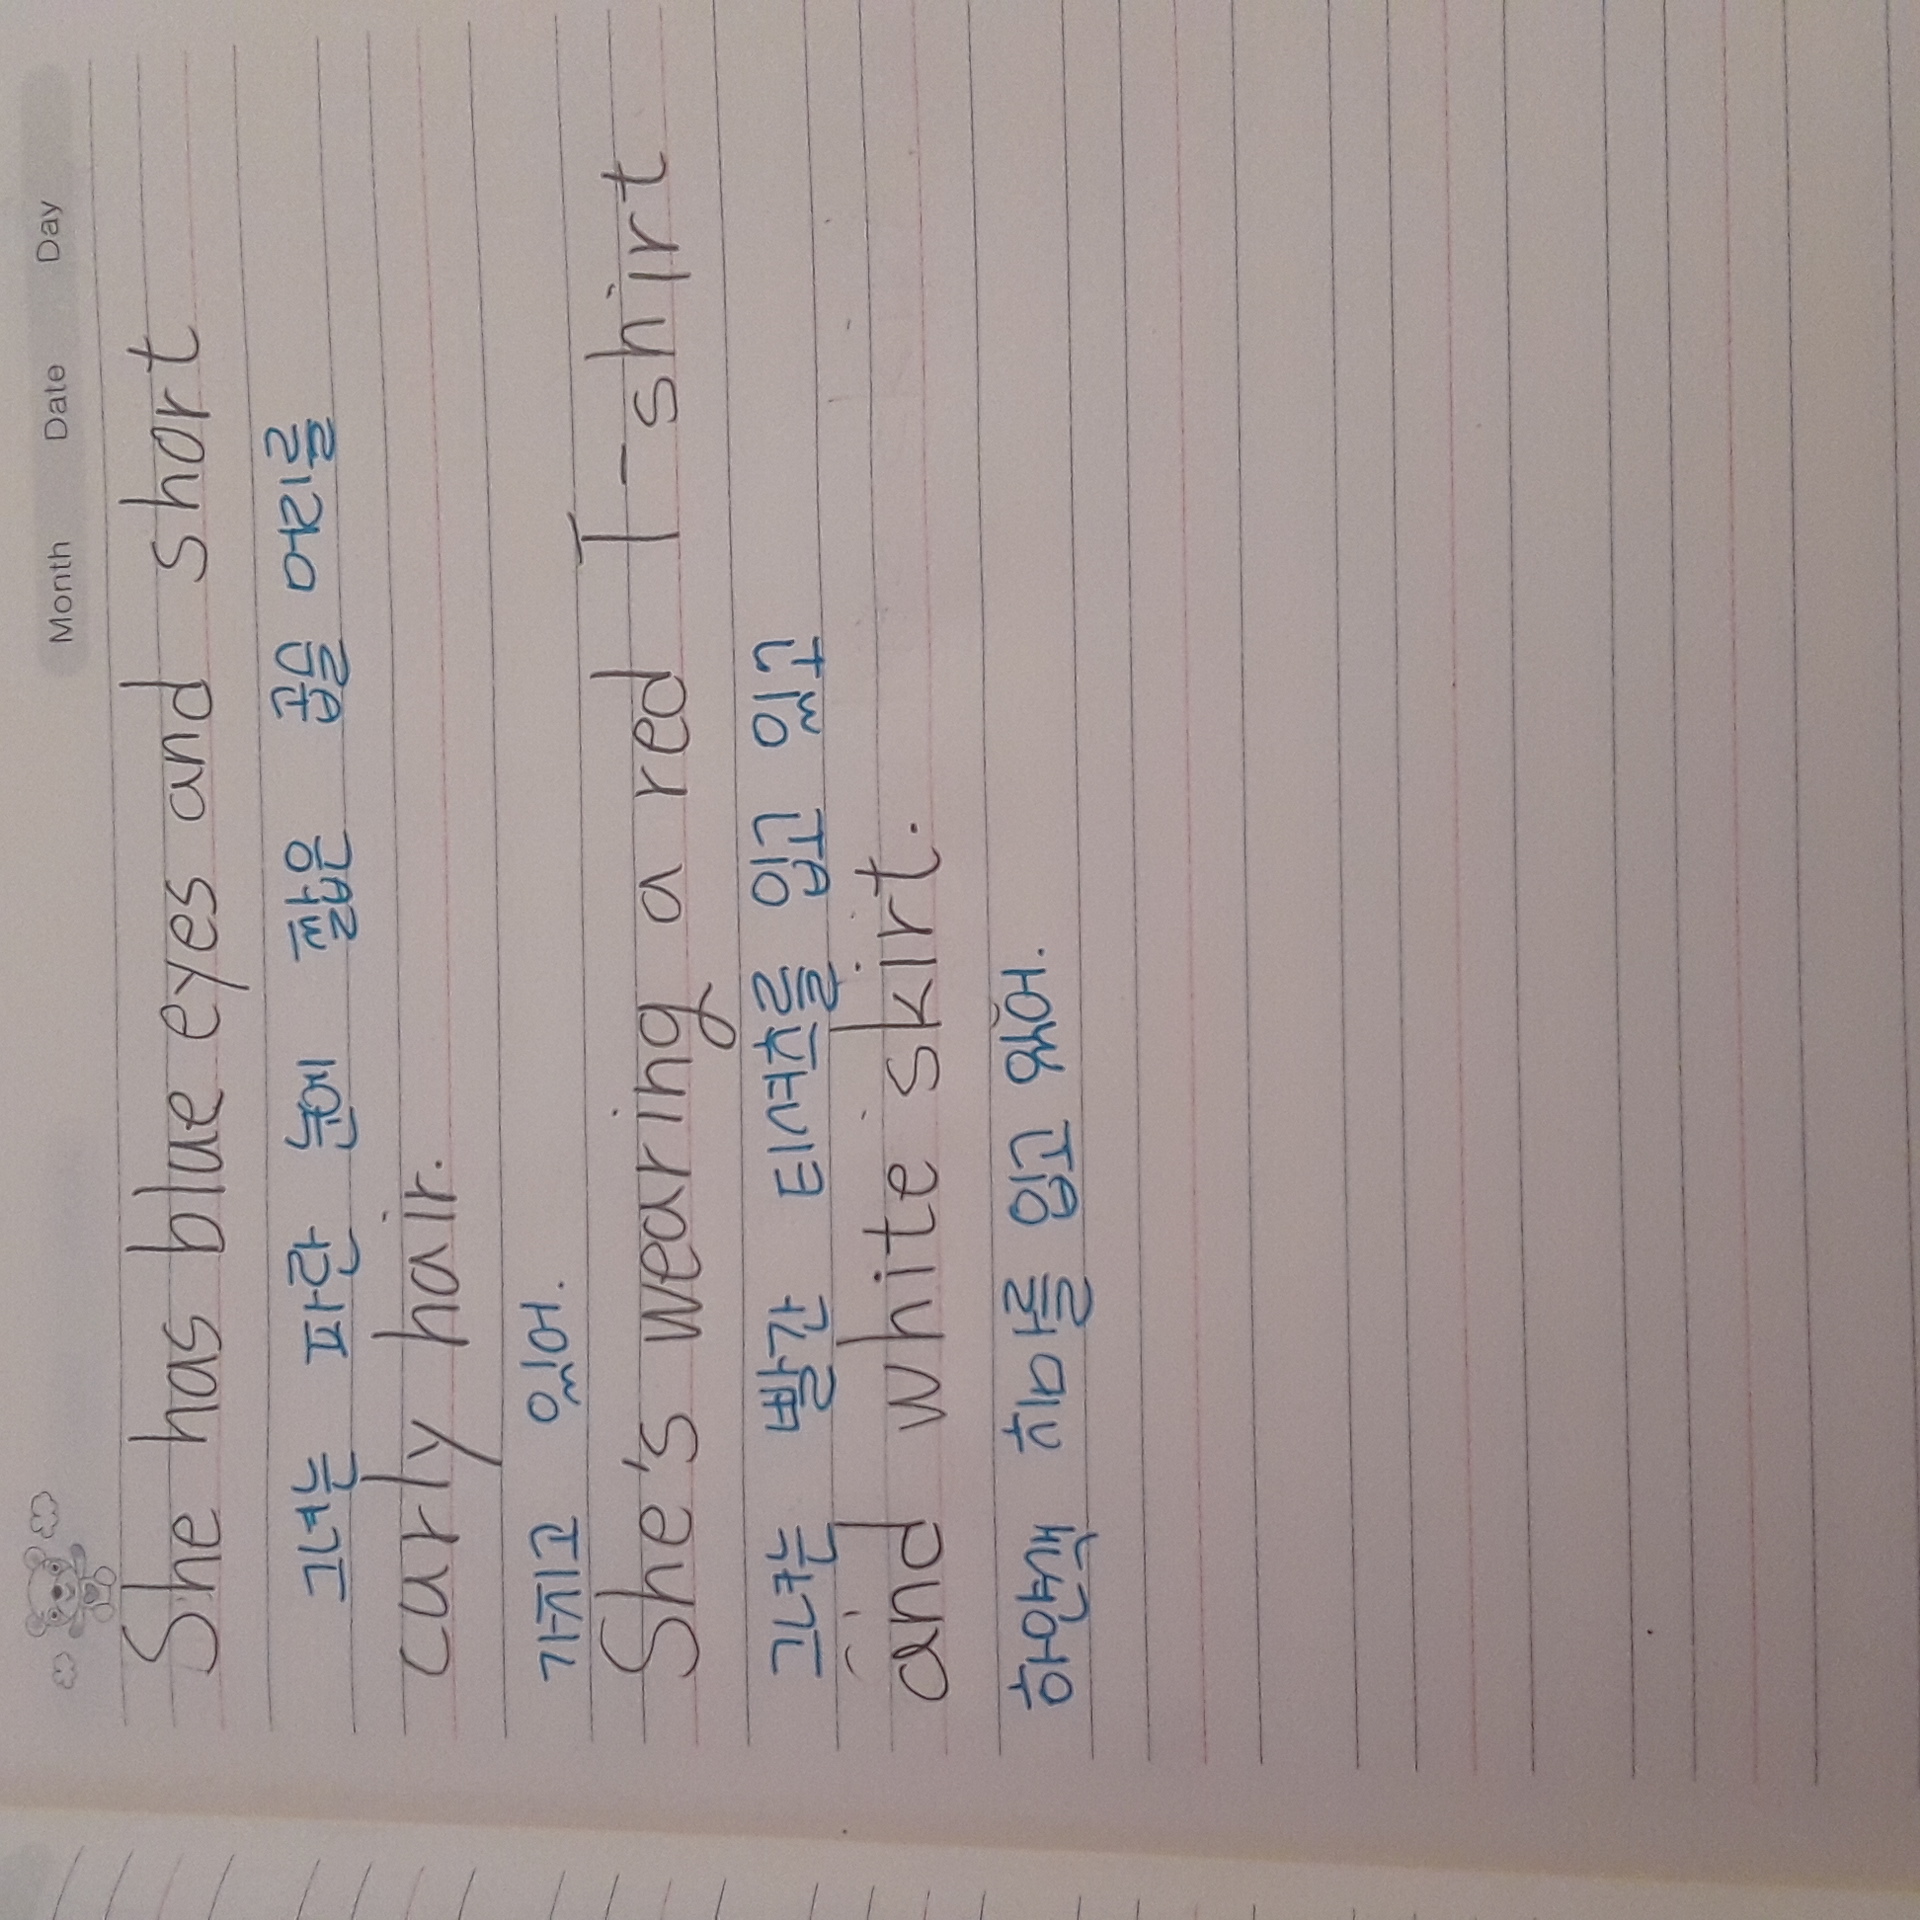 Month Date Day
She has blue eyes and short
그녀는 파란 눈에 짧은 곱슬 머리를
curly hair.
가지고 있어.
She's wearing a red T-shirt
그녀는 빨간 티셔츠를 입고 있고
and white skirt.
하얀색 치마를 입고 있어.